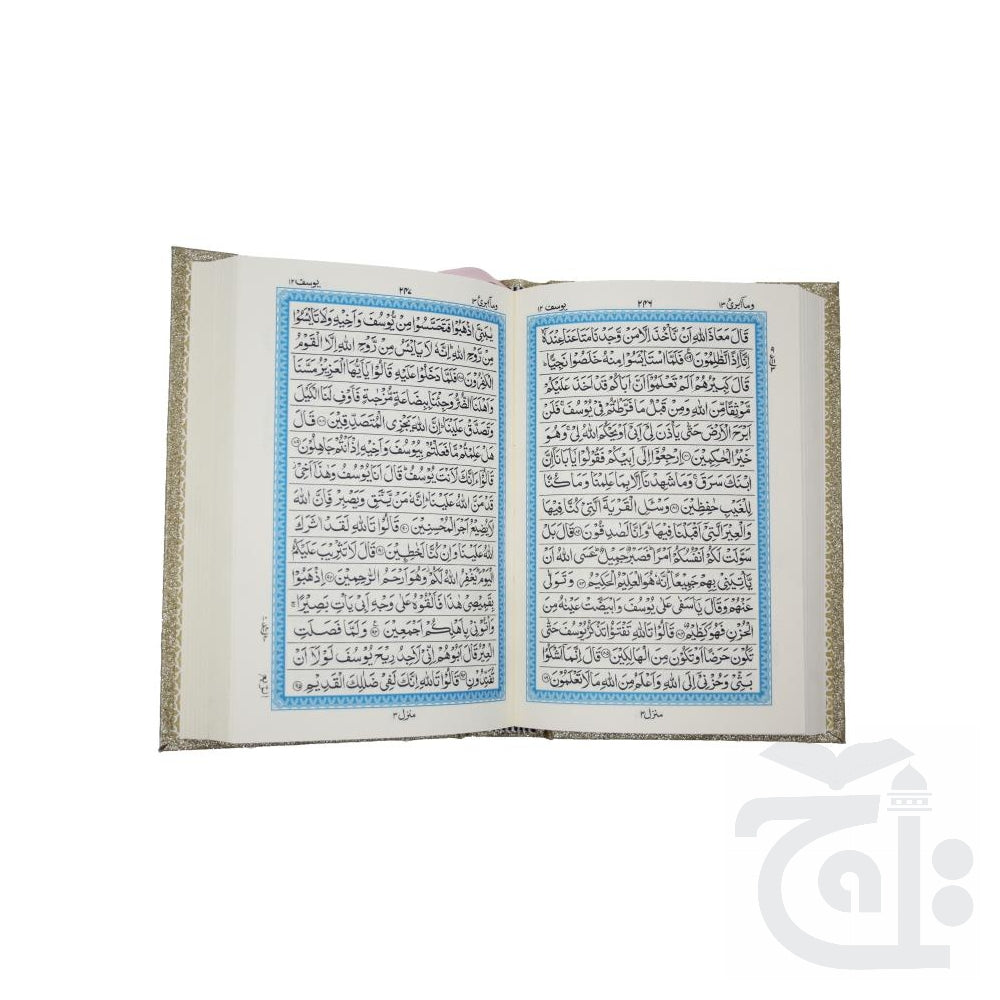 وما ابرئ ١٣
٢٤٦
يوسف ١٢
قَالَ مَعَاذَ اللّٰهِ اَنْ نَّاْخُذَ اِلَّا مَنْ وَّجَدْنَا مَتَاعَنَا عِنْدَهٗۤ
اِنَّاۤ اِذًا لَّظٰلِمُوْنَ ﴿٧٩﴾ فَلَمَّا اسْتَايْـَٔسُوْا مِنْهُ خَلَصُوْا نَجِيًّا
قَالَ كَبِيْرُهُمْ اَلَمْ تَعْلَمُوْۤا اَنَّ اَبَاكُمْ قَدْ اَخَذَ عَلَيْكُمْ
مَّوْثِقًا مِّنَ اللّٰهِ وَمِنْ قَبْلُ مَا فَرَّطْتُّمْ فِيْ يُوْسُفَ فَلَنْ
اَبْرَحَ الْاَرْضَ حَتّٰى يَاْذَنَ لِيْۤ اَبِيْۤ اَوْ يَحْكُمَ اللّٰهُ لِيْ وَهُوَ
خَيْرُ الْحٰكِمِيْنَ ﴿٨٠﴾ اِرْجِعُوْۤا اِلٰۤى اَبِيْكُمْ فَقُوْلُوْا يٰۤاَبَانَاۤ اِنَّ
ابْنَكَ سَرَقَ وَمَا شَهِدْنَاۤ اِلَّا بِمَا عَلِمْنَا وَمَا كُنَّا
لِلْغَيْبِ حٰفِظِيْنَ ﴿٨١﴾ وَسْـَٔلِ الْقَرْيَةَ الَّتِيْ كُنَّا فِيْهَا
وَالْعِيْرَ الَّتِيْۤ اَقْبَلْنَا فِيْهَا وَاِنَّا لَصٰدِقُوْنَ ﴿٨٢﴾ قَالَ بَلْ
سَوَّلَتْ لَكُمْ اَنْفُسُكُمْ اَمْرًا فَصَبْرٌ جَمِيْلٌ عَسَى اللّٰهُ اَنْ
يَّاْتِيَنِيْ بِهِمْ جَمِيْعًا اِنَّهٗ هُوَ الْعَلِيْمُ الْحَكِيْمُ ﴿٨٣﴾ وَتَوَلّٰى
عَنْهُمْ وَقَالَ يٰۤاَسَفٰى عَلٰى يُوْسُفَ وَابْيَضَّتْ عَيْنٰهُ مِنَ
الْحُزْنِ فَهُوَ كَظِيْمٌ ﴿٨٤﴾ قَالُوْا تَاللّٰهِ تَفْتَؤُا تَذْكُرُ يُوْسُفَ حَتّٰى
تَكُوْنَ حَرَضًا اَوْ تَكُوْنَ مِنَ الْهٰلِكِيْنَ ﴿٨٥﴾ قَالَ اِنَّمَاۤ اَشْكُوْا
بَثِّيْ وَحُزْنِيْۤ اِلَى اللّٰهِ وَاَعْلَمُ مِنَ اللّٰهِ مَا لَا تَعْلَمُوْنَ ﴿٨٦﴾
منزل ٣
وما ابرئ ١٣
٢٤٧
يوسف ١٢
يٰبَنِيَّ اذْهَبُوْا فَتَحَسَّسُوْا مِنْ يُّوْسُفَ وَاَخِيْهِ وَلَا تَايْـَٔسُوْا
مِنْ رَّوْحِ اللّٰهِ اِنَّهٗ لَا يَايْـَٔسُ مِنْ رَّوْحِ اللّٰهِ اِلَّا الْقَوْمُ
الْكٰفِرُوْنَ ﴿٨٧﴾ فَلَمَّا دَخَلُوْا عَلَيْهِ قَالُوْا يٰۤاَيُّهَا الْعَزِيْزُ مَسَّنَا
وَاَهْلَنَا الضُّرُّ وَجِئْنَا بِبِضَاعَةٍ مُّزْجٰىةٍ فَاَوْفِ لَنَا الْكَيْلَ
وَتَصَدَّقْ عَلَيْنَا اِنَّ اللّٰهَ يَجْزِي الْمُتَصَدِّقِيْنَ ﴿٨٨﴾ قَالَ
هَلْ عَلِمْتُمْ مَّا فَعَلْتُمْ بِيُوْسُفَ وَاَخِيْهِ اِذْ اَنْتُمْ جٰهِلُوْنَ ﴿٨٩﴾
قَالُوْۤا ءَاِنَّكَ لَاَنْتَ يُوْسُفُ قَالَ اَنَا يُوْسُفُ وَهٰذَاۤ اَخِيْ
قَدْ مَنَّ اللّٰهُ عَلَيْنَا اِنَّهٗ مَنْ يَّتَّقِ وَيَصْبِرْ فَاِنَّ اللّٰهَ
لَا يُضِيْعُ اَجْرَ الْمُحْسِنِيْنَ ﴿٩٠﴾ قَالُوْا تَاللّٰهِ لَقَدْ اٰثَرَكَ
اللّٰهُ عَلَيْنَا وَاِنْ كُنَّا لَخٰطِـِٕيْنَ ﴿٩١﴾ قَالَ لَا تَثْرِيْبَ عَلَيْكُمُ
الْيَوْمَ يَغْفِرُ اللّٰهُ لَكُمْ وَهُوَ اَرْحَمُ الرّٰحِمِيْنَ ﴿٩٢﴾ اِذْهَبُوْا
بِقَمِيْصِيْ هٰذَا فَاَلْقُوْهُ عَلٰى وَجْهِ اَبِيْ يَاْتِ بَصِيْرًا
وَاْتُوْنِيْ بِاَهْلِكُمْ اَجْمَعِيْنَ ﴿٩٣﴾ وَلَمَّا فَصَلَتِ
الْعِيْرُ قَالَ اَبُوْهُمْ اِنِّيْ لَاَجِدُ رِيْحَ يُوْسُفَ لَوْلَاۤ اَنْ
تُفَنِّدُوْنِ ﴿٩٤﴾ قَالُوْا تَاللّٰهِ اِنَّكَ لَفِيْ ضَلٰلِكَ الْقَدِيْمِ ﴿٩٥﴾
منزل ٣